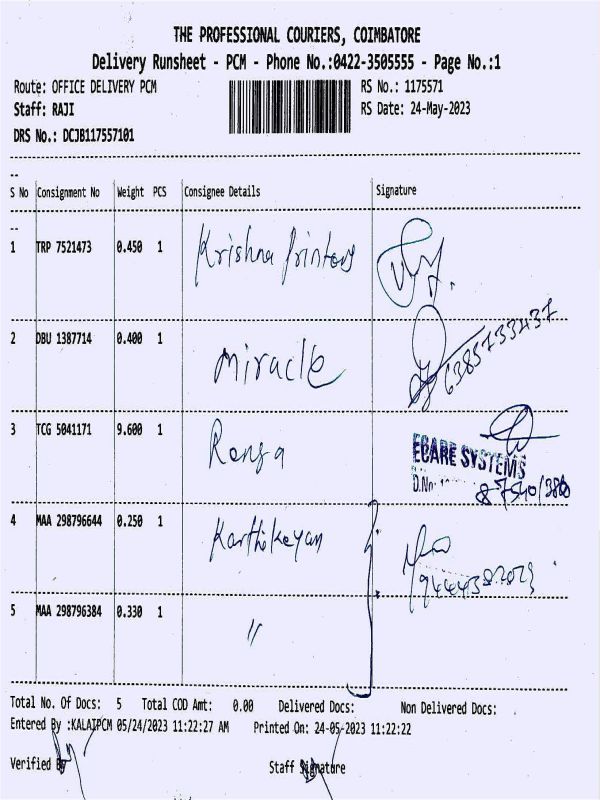 THE PROFESSIONAL COURIERS, COIMBATORE
Delivery Runsheet - PCM - Phone No.:0422-3505555 - Page No.:1
Route: OFFICE DELIVERY PCM RS No.: 1175571
Staff: RAJI RS Date: 24-May-2023
DRS No.: DCJB117557101
--
S No Consignment No Weight PCS Consignee Details Signature
--
1 TRP 7521473 0.450 1 Krishna Printers
2 DBU 1387714 0.400 1 miracle 6385733437
3 TCG 5041171 9.600 1 Renga
ECARE SYSTEMS
D.No:
4 MAA 298796644 0.250 1 Karthikeyan
5 MAA 298796384 0.330 1 "
Total No. Of Docs: 5 Total COD Amt: 0.00 Delivered Docs: Non Delivered Docs:
Entered By :KALAIPCM 05/24/2023 11:22:27 AM Printed On: 24-05-2023 11:22:22
Verified By Staff Signature